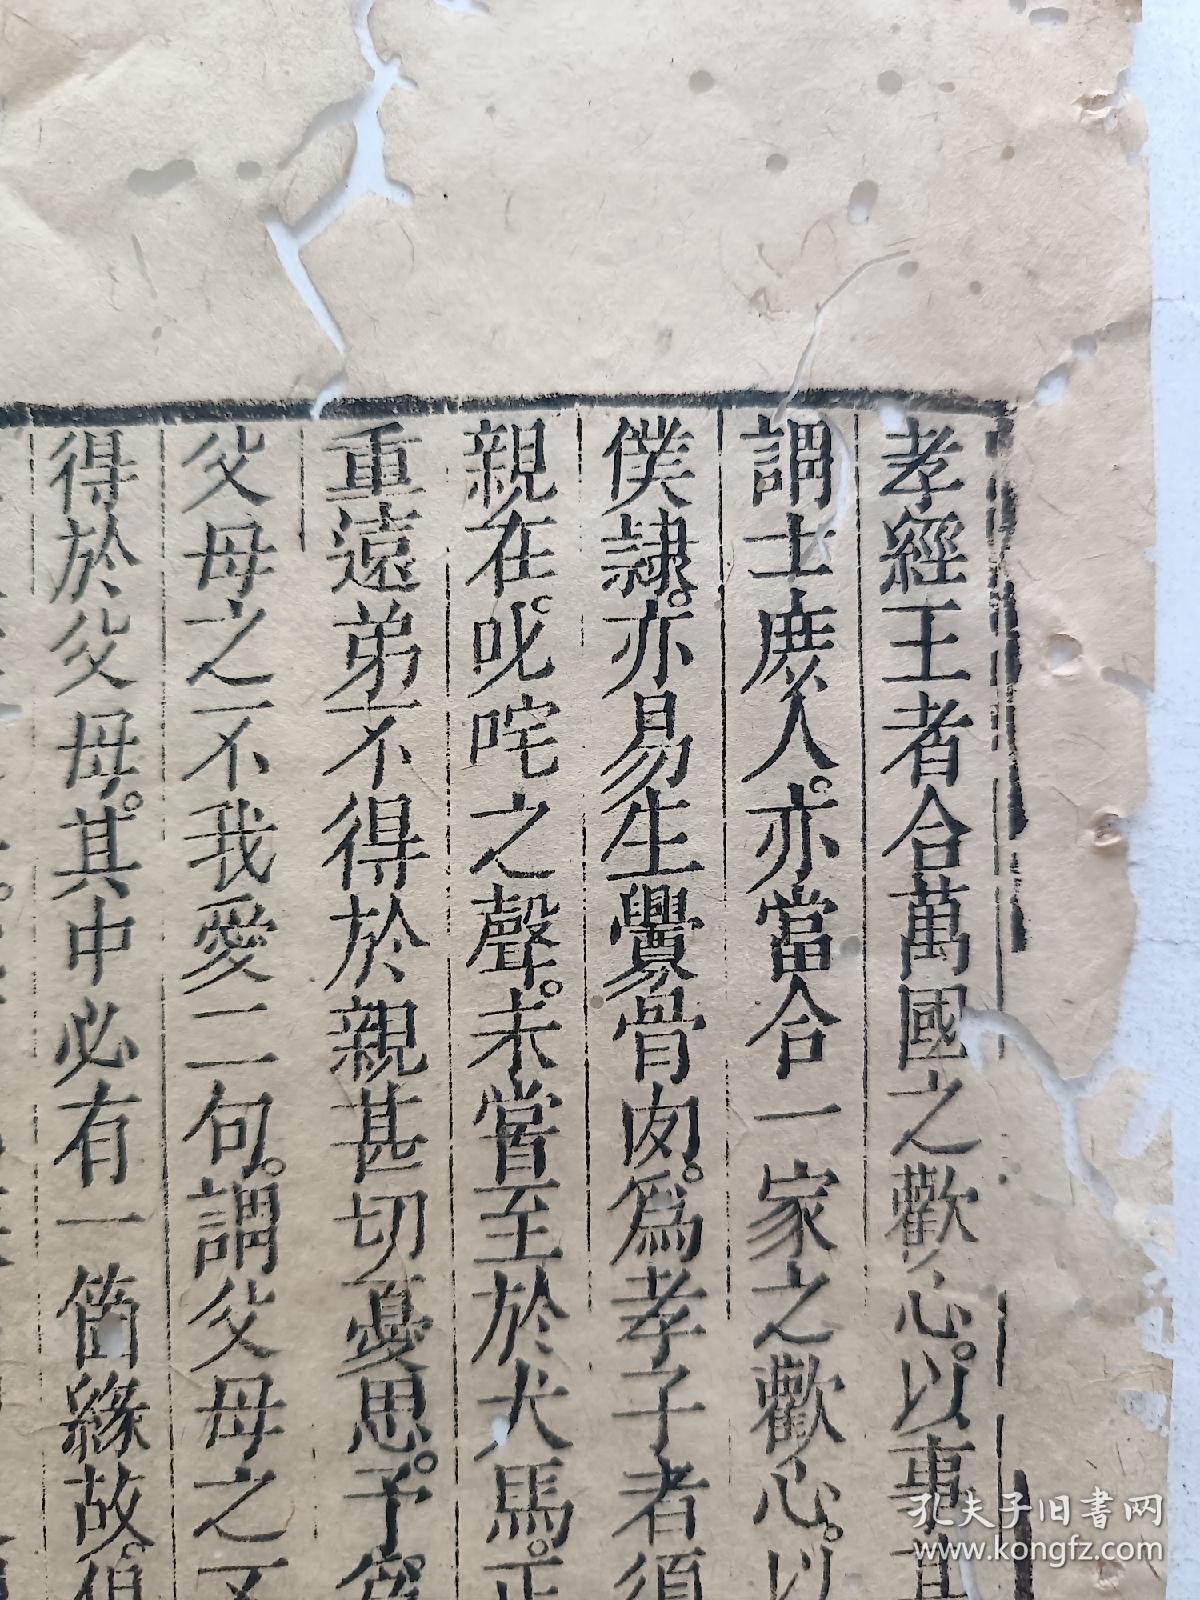 孝經王者合萬國之歡心。以事其
謂士庶人。亦當合一家之歡心。以
僕隷。亦易生釁骨肉。爲孝子者須
親在。叱咤之聲。未嘗至於犬馬。正
重遠弟不得於親甚切憂思。予
父母之不我愛二句。謂父母之不
得於父母。其中必有一箇緣故。
孔夫子旧书网
www.kongfz.com